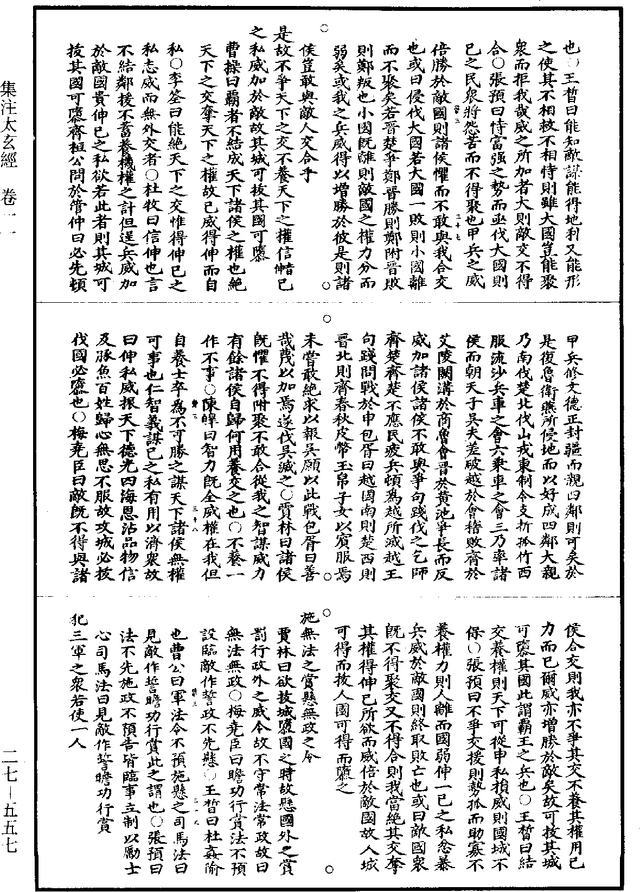 也○王晳曰能知敵謀能得地利又能形
之使其不相救不相恃則雖大國豈能聚
衆而拒我哉威之所加者大則敵交不得
合○張預曰恃富强之勢而亟伐大國則
己之民衆將怨苦而不得聚也甲兵之威
倍勝於敵國則諸侯懼而不敢與我合交
也或曰侵伐大國若大國一敗則小國離
而不聚矣若晉楚爭鄭晉勝則鄭附晉敗
則鄭叛也小國既離則敵國之權力分而
弱矣或我之兵威得以增勝於彼是則諸
侯豈敢與敵人交合乎
是故不爭天下之交不養天下之權信己
之私威加於敵故其城可拔其國可隳
曹操曰霸者不結成天下諸侯之權也絶
天下之交奪天下之權故己威得伸而自
私○李筌曰能絶天下之交惟得伸己之
私志威而無外交者○杜牧曰信伸也言
不結鄰援不蓄養機權之計但逞兵威加
於敵國貴伸己之私欲若此者則其城可
拔其國可隳齊桓公問於管仲曰必先頓
甲兵修文德正封疆而親四鄰則可矣於
是復魯衛燕所侵地而以好成四鄰大親
乃南伐楚北伐山戎東制令支折孤竹西
服流沙兵車之會六乘車之會三乃率諸
侯而朝天子吳夫差破越於會稽敗齊於
艾陵闕溝於商魯會晉於黄池爭長而反
威加諸侯諸侯不敢與爭句踐伐之乞師
齊楚齊楚不應民疲兵頓爲越所滅越王
句踐問戰於申包胥曰越國南則楚西則
晉北則齊春秋皮幣玉帛子女以賓服焉
未嘗敢絶求以報吳願以此戰包胥曰善
哉蔑以加焉遂伐吳滅之○賈林曰諸侯
既懼不得附聚不敢合從我之智謀威力
有餘諸侯自歸何用養交之也○不養一
作不事○陳皥曰智力既全威權在我但
自養士卒爲不可勝之謀天下諸侯無權
可事也仁智義謀己之私有用以濟衆故
曰伸私威振天下德光四海恩沾品物信
及豚魚百姓歸心無思不服故攻城必拔
伐國必隳也○梅堯臣曰敵既不得與諸
侯合交則我亦不爭其交不養其權用己
力而已爾威亦增勝於敵矣故可拔其城
可隳其國此謂霸王之兵也○王晳曰結
交養權則天下可從申私損威則國城不
保○張預曰不爭交援則勢孤而助寡不
養權力則人離而國弱伸一己之私忿暴
兵威於敵國則終取敗亡也或曰敵國衆
既不得聚交又不得合則我當絶其交奪
其權得伸己所欲而威倍於敵國故人城
可得而拔人國可得而隳之
施無法之賞懸無政之令
賈林曰欲拔城隳國之時故懸國外之賞
罰行政外之威令故不守常法常政故曰
無法無政○梅堯臣曰瞻功行賞法不預
設臨敵作誓政不先懸○王晳曰杜姦媮
也曹公曰軍法令不預施懸之司馬法曰
見敵作誓瞻功行賞此之謂也○張預曰
法不先施政不預告皆臨事立制以勵士
心司馬法曰見敵作誓瞻功行賞
犯三軍之衆若使一人
集注太玄經　卷一一
二七—五五七